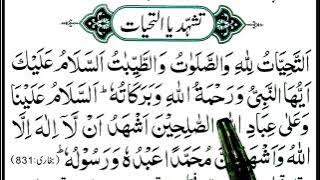 تشہد یا التحیات
اَلتَّحِيَّاتُ لِلّٰهِ وَالصَّلَوٰتُ وَالطَّيِّبٰتُ اَلسَّلَامُ عَلَيْكَ
اَيُّهَا النَّبِيُّ وَرَحْمَةُ اللّٰهِ وَبَرَكَاتُهٗ ؕ اَلسَّلَامُ عَلَيْنَا
وَعَلٰى عِبَادِ الصّٰلِحِيْنَ اَشْهَدُ اَنْ لَّا اِلٰهَ اِلَّا
اللّٰهُ وَاَشْهَدُ مُحَمَّدًا عَبْدُهٗ وَرَسُوْلُهٗ ؕ (بخاری:831)